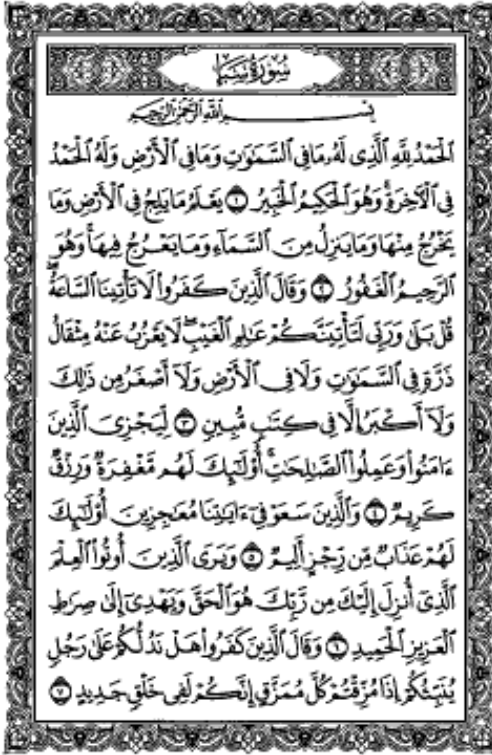 سُورَةُ سَبَإٍ
بِسْمِ ٱللَّهِ ٱلرَّحْمَٰنِ ٱلرَّحِيمِ
ٱلْحَمْدُ لِلَّهِ ٱلَّذِى لَهُۥ مَا فِى ٱلسَّمَٰوَٰتِ وَمَا فِى ٱلْأَرْضِ وَلَهُ ٱلْحَمْدُ
فِى ٱلْأٓخِرَةِۚ وَهُوَ ٱلْحَكِيمُ ٱلْخَبِيرُ ١ يَعْلَمُ مَا يَلِجُ فِى ٱلْأَرْضِ وَمَا
يَخْرُجُ مِنْهَا وَمَا يَنزِلُ مِنَ ٱلسَّمَآءِ وَمَا يَعْرُجُ فِيهَاۚ وَهُوَ
ٱلرَّحِيمُ ٱلْغَفُورُ ٢ وَقَالَ ٱلَّذِينَ كَفَرُوا۟ لَا تَأْتِينَا ٱلسَّاعَةُۖ
قُلْ بَلَىٰ وَرَبِّى لَتَأْتِيَنَّكُمْ عَٰلِمِ ٱلْغَيْبِۖ لَا يَعْزُبُ عَنْهُ مِثْقَالُ
ذَرَّةٍ فِى ٱلسَّمَٰوَٰتِ وَلَا فِى ٱلْأَرْضِ وَلَآ أَصْغَرُ مِن ذَٰلِكَ
وَلَآ أَكْبَرُ إِلَّا فِى كِتَٰبٍ مُّبِينٍ ٣ لِّيَجْزِىَ ٱلَّذِينَ
ءَامَنُوا۟ وَعَمِلُوا۟ ٱلصَّٰلِحَٰتِۚ أُو۟لَٰٓئِكَ لَهُم مَّغْفِرَةٌ وَرِزْقٌ
كَرِيمٌ ٤ وَٱلَّذِينَ سَعَوْ فِىٓ ءَايَٰتِنَا مُعَٰجِزِينَ أُو۟لَٰٓئِكَ
لَهُمْ عَذَابٌ مِّن رِّجْزٍ أَلِيمٌ ٥ وَيَرَى ٱلَّذِينَ أُوتُوا۟ ٱلْعِلْمَ
ٱلَّذِىٓ أُنزِلَ إِلَيْكَ مِن رَّبِّكَ هُوَ ٱلْحَقَّ وَيَهْدِىٓ إِلَىٰ صِرَٰطِ
ٱلْعَزِيزِ ٱلْحَمِيدِ ٦ وَقَالَ ٱلَّذِينَ كَفَرُوا۟ هَلْ نَدُلُّكُمْ عَلَىٰ رَجُلٍ
يُنَبِّئُكُمْ إِذَا مُزِّقْتُمْ كُلَّ مُمَزَّقٍ إِنَّكُمْ لَفِى خَلْقٍ جَدِيدٍ ٧